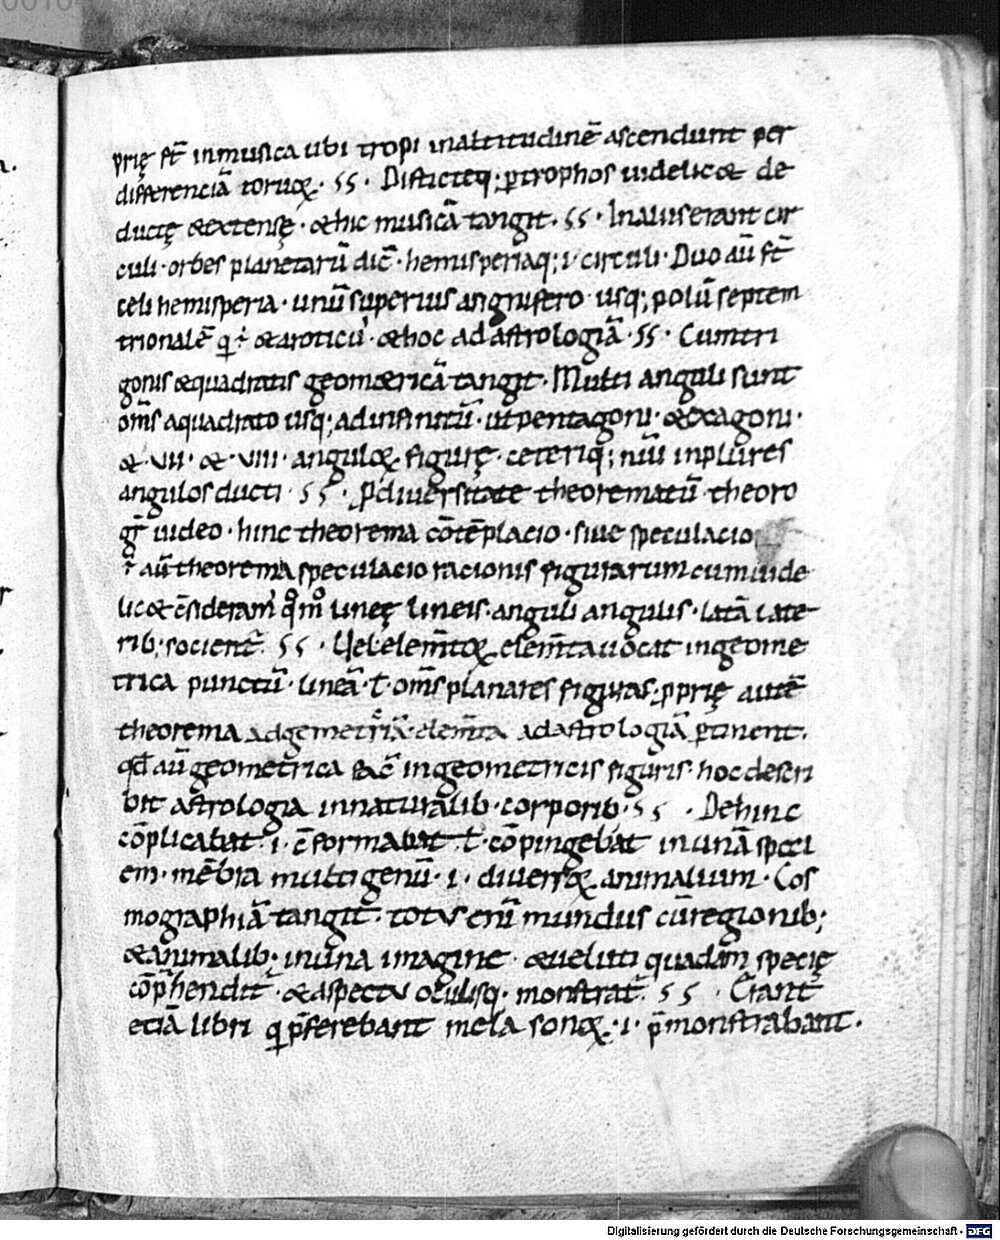 prię st̄ inmusica ubi tropi inaltitudinē ascendunt per
differenciā tonoꝝ · SS · Disticteq; ꝑtrophos uidelic& de
ductę &extensę · &hic musicā tangit · SS · Inalus erant cir
culi · orbes planetarū dic̄ · hemisperiaq; · i · circuli · Duo aū st̄
celi hemisperia · unū superius asignifero usq; polū septem
trionalē q ÷ &aroticu᷒ · &hoc ad astrologiā · SS · Cumtri
gonis &quadratis geom&ricā tangit · Multi anguli sunt
om̄s aquadrato usq; adinfinitū · ut pentagoni · &exagoni ·
& · VII · & · VIII · anguloꝝ figurę · ceteriq; nūi inplures
angulos ducti · SS · P̱diuersitate theorematū theoro
gr̄ uideo · hinc theorema cōtēplacio · siue speculacio
÷ aū theorema speculacio racionis figurarum cum uide
lic& cōsiderant᷑ qͦmͦ lineę lineis · anguli angulis · latā late
rib; socient᷑ · SS · Uel elem̄toꝝ elem̄ta uocat ingeome
trica punctū · lineā · ł · om̄s planares figuras · ꝓprię autē
theorema adgemetriā · elem̄ta ad astrologiā ꝑtinent ·
qd̄ aū geometrica fac̄ ingeometricis figuris · hoc descri
bit astrologia innaturalib · corporib · SS · Dehinc
cōplicabat · i · cōformabat · ł · cōpingebat inunā speci
em · mēbra multigenū · i · diuersoꝝ animalium · Cos
mographiā tangit · totus enī mundus cū regionib;
&animalib · inuna imagine · &ueluti quadam specię
cōp̄hendit᷑ · &aspectu oculisq · monstrat᷑ · SS · Erant
etiā libri q p̄ferebant mela sonoꝝ · i · p̄monstrabant ·
Digitalisierung gefördert durch die Deutsche Forschungsgemeinschaft · DFG